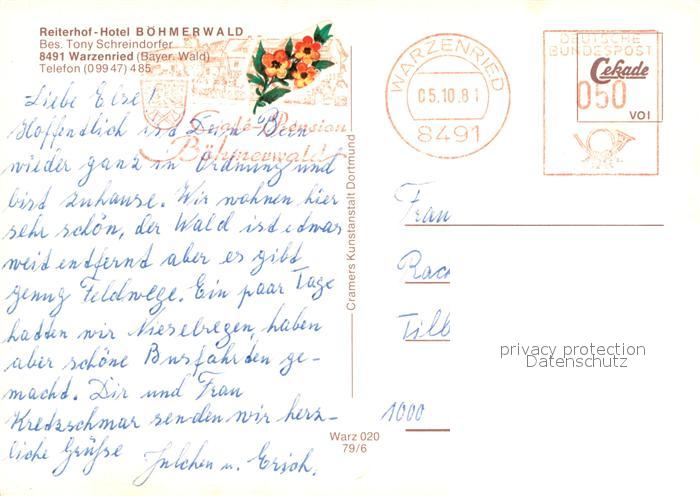 Reiterhof-Hotel BÖHMERWALD
Bes. Tony Schreindorfer
8491 Warzenried (Bayer. Wald)
Telefon (0 99 47) 4 85
Liebe Else!
Hoffentlich ist Dein Bein
wieder ganz in Ordnung und
bist zuhause. Wir wohnen hier
sehr schön, der Wald ist etwas
weit entfernt aber es gibt
genug Feldwege. Ein paar Tage
hatten wir Nieselregen, haben
aber schöne Busfahrten ge-
macht. Dir und Frau
Kretzschmar senden wir herz-
liche Grüße Julchen u. Erich.
Böhmerwald
WARZENRIED
05.10.81
8491
DEUTSCHE
BUNDESPOST
Cekade
050
VOI
Cramers Kunstanstalt Dortmund
Warz 020
79/6
Frau
Rac
Tilb
1000
privacy protection
Datenschutz